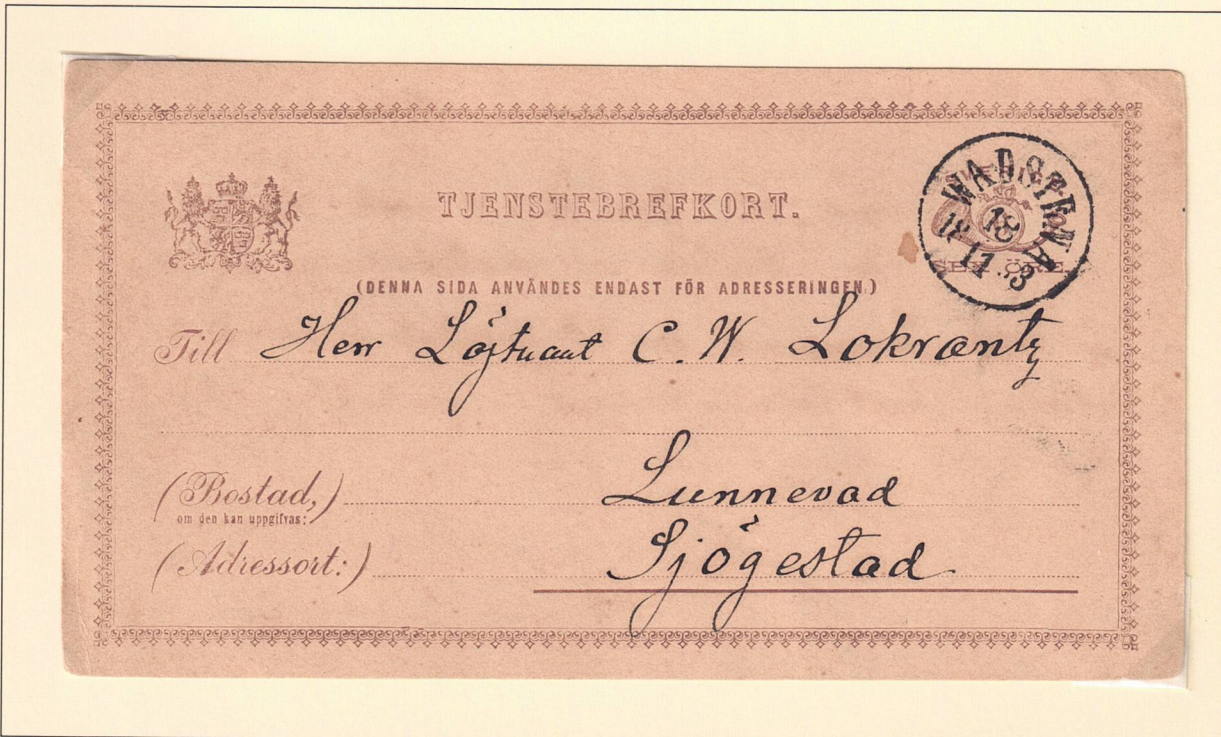 TJENSTEBREFKORT.
WADSTENA
18
11
ÖRE.
(DENNA SIDA ANVÄNDES ENDAST FÖR ADRESSERINGEN.)
Till Herr Löjtnant C. W. Lokrantz
(Bostad,) Lunnevad
om den kan uppgifvas:
(Adressort:) Sjögestad